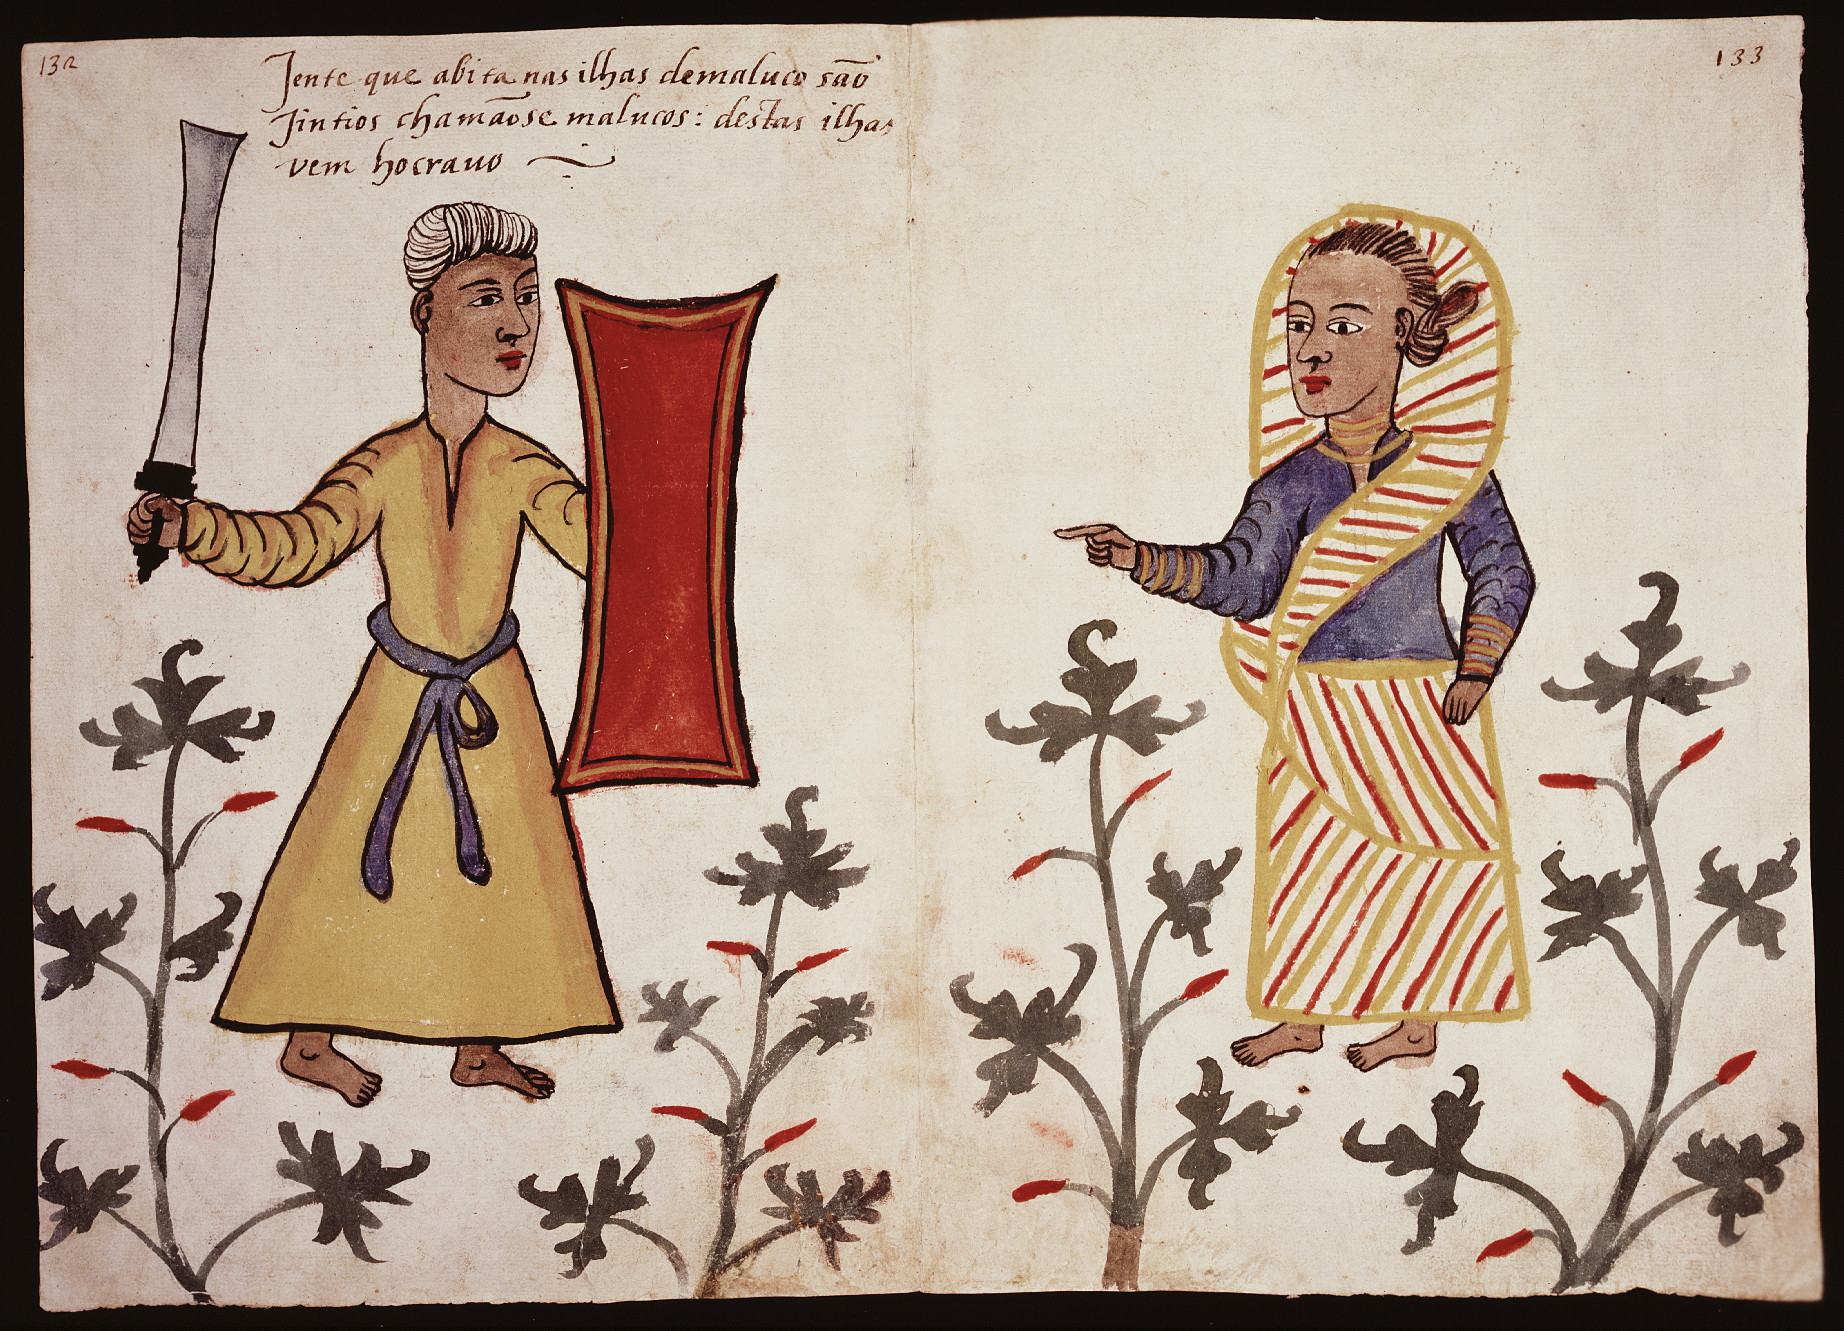 132
Jente que abita nas ilhas demaluco são
Jintios chamãose malucos: destas ilhas
vem hocrauo
133